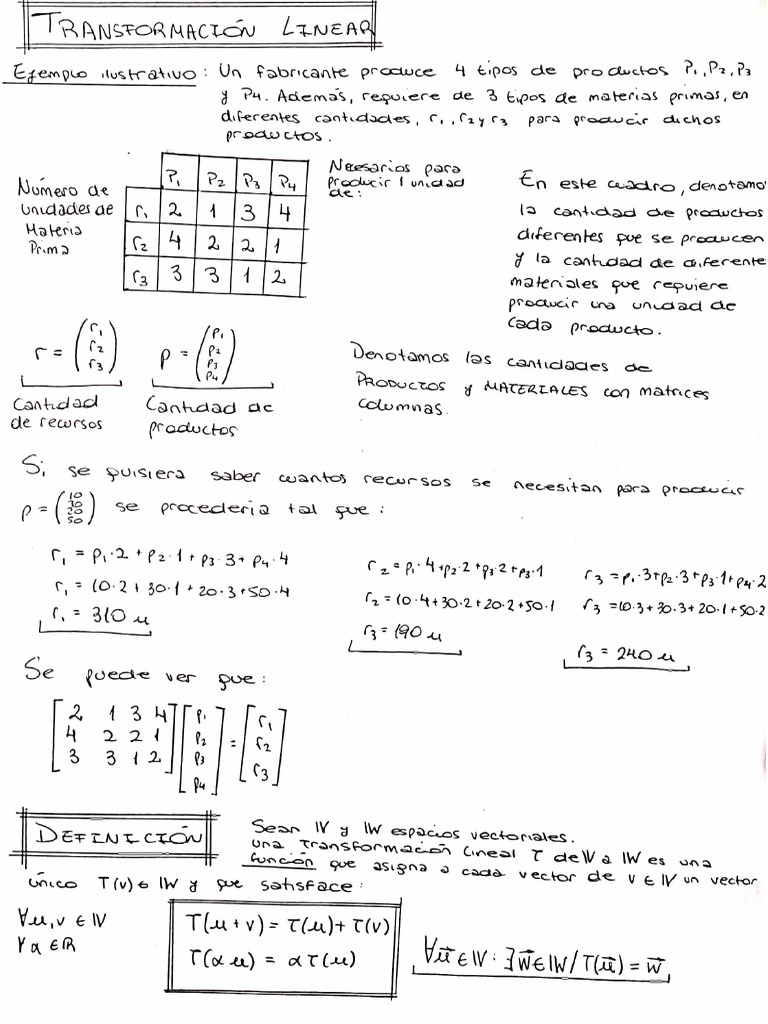 TRANSFORMACIÓN LINEAR
Ejemplo ilustrativo: Un fabricante produce 4 tipos de productos P₁, P₂, P₃
y P4. Además, requiere de 3 tipos de materias primas, en
diferentes cantidades, r₁, r₂ y r₃ para producir dichos
productos.
P₁ P₂ P₃ P₄
r₁ 2 1 3 4
r₂ 4 2 2 1
r₃ 3 3 1 2
Número de
unidades de
Materia
Prima
Necesarios para
Producir 1 unidad
de:
En este cuadro, denotamos
la cantidad de productos
diferentes que se producen
y la cantidad de diferente
materiales que requiere
producir una unidad de
cada producto.
r = (r₁ r₂ r₃) p = (p₁ p₂ p₃ p₄)
Cantidad
de recursos
Cantidad de
productos
Denotamos las cantidades de
PRODUCTOS y MATERIALES con matrices
columnas.
Si se quisiera saber cuantos recursos se necesitan para producir
p = (10 30 20 50) se procederia tal que:
r₁ = p₁·2 + p₂·1 + p₃·3 + p₄·4
r₁ = 10·2 + 30·1 + 20·3 + 50·4
r₁ = 310 u
r₂ = p₁·4 + p₂·2 + p₃·2 + p₃·1
r₂ = 10·4 + 30·2 + 20·2 + 50·1
r₃ = 190 u
r₃ = p₁·3 + p₂·3 + p₃·1 + p₄·2
r₃ = 10·3 + 30·3 + 20·1 + 50·2
r₃ = 240 u
Se puede ver que:
[2 1 3 4] [p₁] [r₁]
[4 2 2 1] [p₂] = [r₂]
[3 3 1 2] [p₃] [r₃]
[p₄]
DEFINICIÓN
Sean V y W espacios vectoriales.
una transformación lineal T de V a W es una
función que asigna a cada vector de v ∈ V un vector
único T(v) ∈ W y que satisface:
∀u, v ∈ V
∀α ∈ R
T(u + v) = T(u) + T(v)
T(αu) = αT(u)
∀u⃗ ∈ V : ∃w⃗ ∈ W / T(u⃗) = w⃗